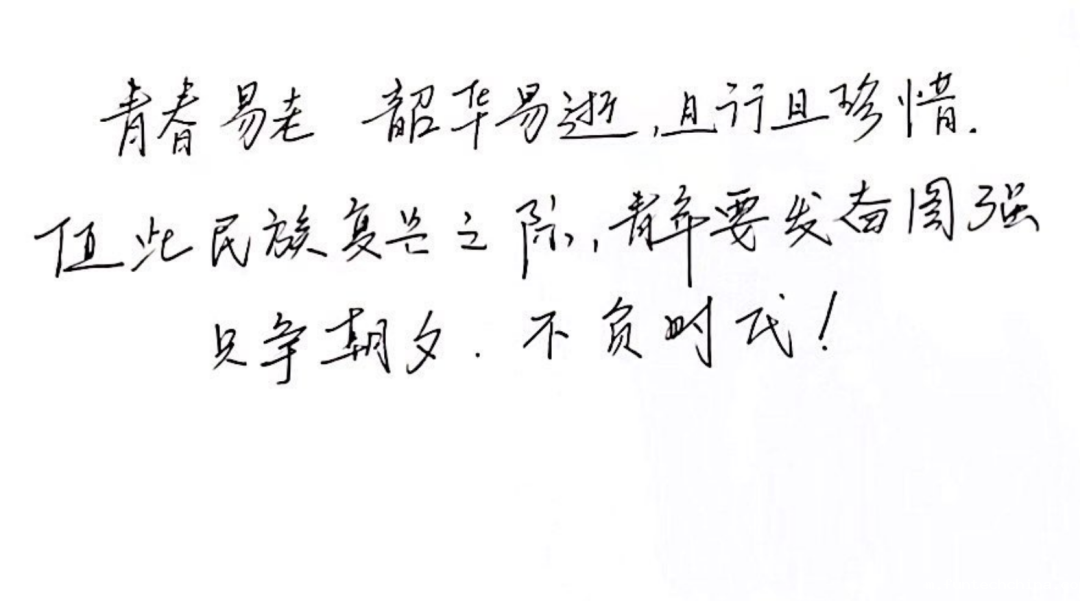 青春易老 韶华易逝,且行且珍惜.
值此民族复兴之际,青年要发奋图强
只争朝夕.不负时代!